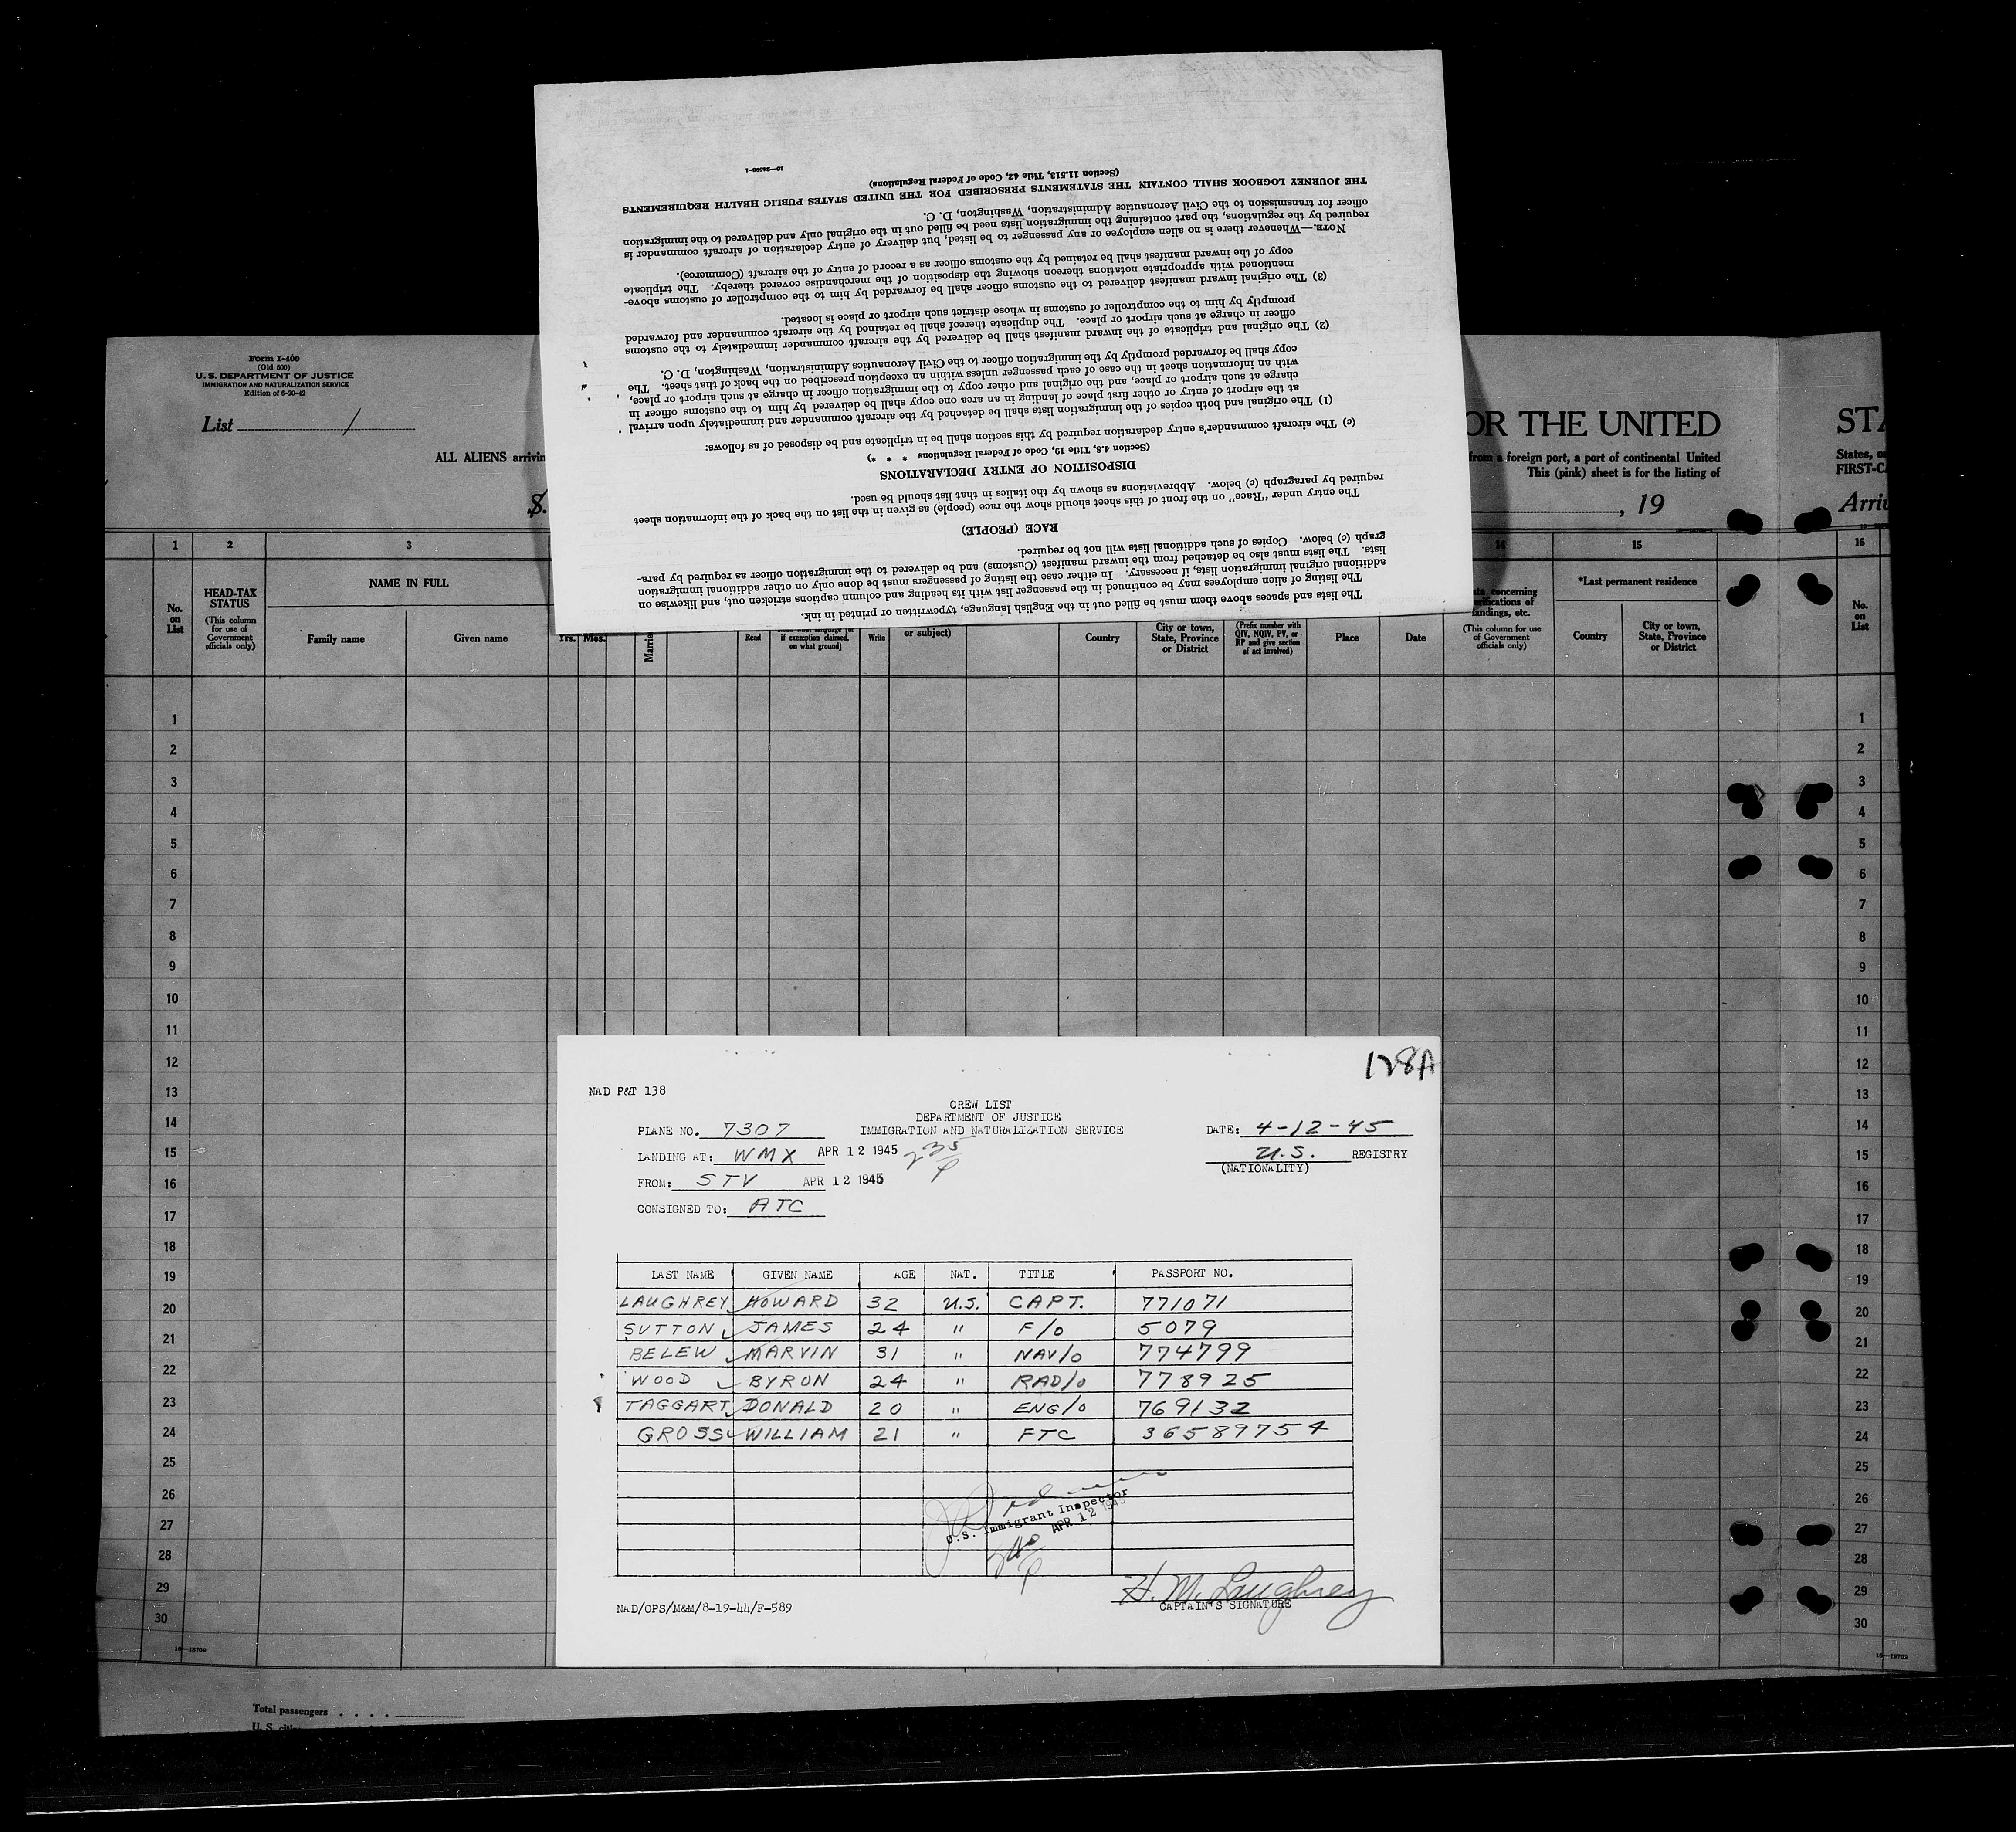 THE JOURNEY LOGBOOK SHALL CONTAIN THE STATEMENTS PRESCRIBED FOR THE UNITED STATES PUBLIC HEALTH REQUIREMENTS
(Section 11.513, Title 42, Code of Federal Regulations)
The lists and spaces above them must be filled out in the English language, typewritten or printed in ink.
The listing of alien employees may be continued in the passenger list with its heading and column captions stricken out, and likewise on
additional original immigration lists, if necessary. In either case the listing of passengers must be done only on other additional immigration
lists. The lists must also be detached from the inward manifest (Customs) and be delivered to the immigration officer as required by para-
graph (c) below. Copies of such additional lists will not be required.
RACE (PEOPLE)
The entry under "Race" on the front of this sheet should show the race (people) as given in the list on the back of the information sheet
required by paragraph (c) below. Abbreviations as shown by the italics in that list should be used.
DISPOSITION OF ENTRY DECLARATIONS
(Section 4.8, Title 19, Code of Federal Regulations * * *)
(c) The aircraft commander's entry declaration required by this section shall be in triplicate and be disposed of as follows:
(1) The original and both copies of the immigration lists shall be detached by the aircraft commander and immediately upon arrival
at the airport of entry or other first place of landing in an area one copy shall be delivered by him to the customs officer in
charge at such airport or place, and the original and other copy to the immigration officer in charge at such airport or place,
with an information sheet in the case of each passenger unless within an exception prescribed on the back of that sheet. The
copy shall be forwarded promptly by the immigration officer to the Civil Aeronautics Administration, Washington, D. C.
(2) The original and triplicate of the inward manifest shall be delivered by the aircraft commander immediately to the customs
officer in charge at such airport or place. The duplicate thereof shall be retained by the aircraft commander and forwarded
promptly by him to the comptroller of customs in whose district such airport or place is located.
(3) The original inward manifest delivered to the customs officer shall be forwarded by him to the comptroller of customs above-
mentioned with appropriate notations thereon showing the disposition of the merchandise covered thereby. The triplicate
copy of the inward manifest shall be retained by the customs officer as a record of entry of the aircraft (Commerce).
NOTE.—Whenever there is no alien employee or any passenger to be listed, but delivery of entry declaration of aircraft commander is
required by the regulations, the part containing the immigration lists need be filled out in the original only and delivered to the immigration
officer for transmission to the Civil Aeronautics Administration, Washington, D. C.
Form I-400
(Old 500)
U. S. DEPARTMENT OF JUSTICE
IMMIGRATION AND NATURALIZATION SERVICE
Edition of 6-20-42
List /
OR THE UNITED STA
ALL ALIENS arrivin
from a foreign port, a port of continental United States, o
This (pink) sheet is for the listing of FIRST-C
S.
, 19 Arri
1 2 3 14 15 16
No. on List
HEAD-TAX STATUS
(This column for use of Government officials only)
NAME IN FULL
Family name Given name
Yrs. Mos.
Marrie
Read
if exemption claimed, on what ground)
Write
or subject)
Country
City or town, State, Province or District
(Prefix number with QIV, NQIV, PV, or RP and give section of act involved)
Place Date
concerning
landings, etc.
(This column for use of Government officials only)
*Last permanent residence
Country
City or town, State, Province or District
No. on List
1 1
2 2
3 3
4 4
5 5
6 6
7 7
8 8
9 9
10 10
11 11
12 12
13 13
14 14
15 15
16 16
17 17
18 18
19 19
20 20
21 21
22 22
23 23
24 24
25 25
26 26
27 27
28 28
29 29
30 30
16—18709 16—18709
Total passengers . . . .
128A
NAD P&T 138
CREW LIST
DEPARTMENT OF JUSTICE
PLANE NO. 7307 IMMIGRATION AND NATURALIZATION SERVICE DATE: 4-12-45
LANDING AT: WMX APR 12 1945 235 P U.S. REGISTRY
(NATIONALITY)
FROM: STV APR 12 1945
CONSIGNED TO: ATC
LAST NAME GIVEN NAME AGE NAT. TITLE PASSPORT NO.
LAUGHREY HOWARD 32 U.S. CAPT. 771071
SUTTON JAMES 24 " F/O 5079
BELEW MARVIN 31 " NAV/O 774799
WOOD BYRON 24 " RAD/O 778925
TAGGART DONALD 20 " ENG/O 769132
GROSS WILLIAM 21 " FTC 36589754
U.S. Immigrant Inspector
APR 12 1945
H. M. Laughrey
CAPTAIN'S SIGNATURE
NAD/OPS/M&M/8-19-44/F-589